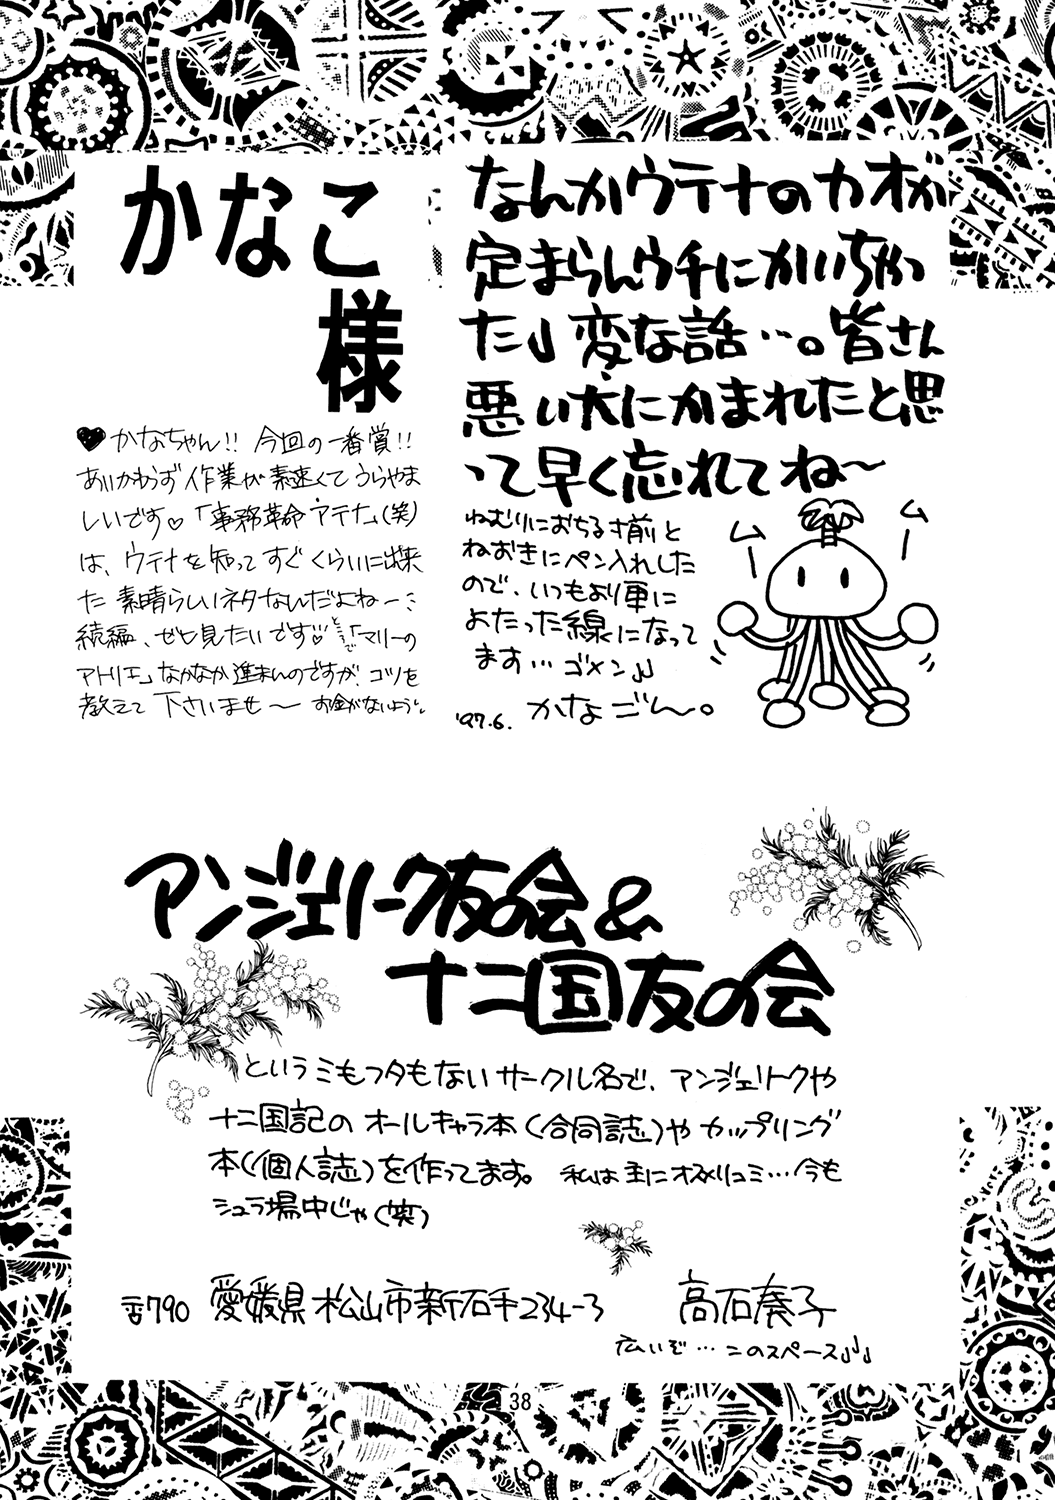 かなこ
様
♥かなちゃん!! 今回の一番賞!!
あいかわらず作業が素速くてうらやま
しいです♡「事務革命アテナ」(笑)
は、ウテナを知ってすぐくらいに出来
た 素晴らしいネタなんだよねー…
続編、ぜひ見たいです♡ところで「マリーの
アトリエ」なかなか進まんのですが、コツを
教えて 下さいませ〜 お金がないよう。
なんかウテナのカオが
定まらんウチにかいちゃっ
た♩変な話…。皆さん
悪い犬にかまれたと思
って早く忘れてね〜
ねむりにおちる寸前と
ねおきにペン入れした
ので、いつもより更に
よたった線になって
ます… ゴメン♩♩
'97.6. かなごん。
ムー
ムー
アンジェリーク友の会&
十二国友の会
というミもフタもないサークル名で、アンジェリークや
十二国記の オールキャラ本(合同誌)や カップリング
本(個人誌)を作ってます。 私は主にオスカリュミ…今も
シュラ場中じゃ(笑)
〒790 愛媛県松山市新石手234-3 高石奏子
広いぞ… このスペース♩♩♩
38